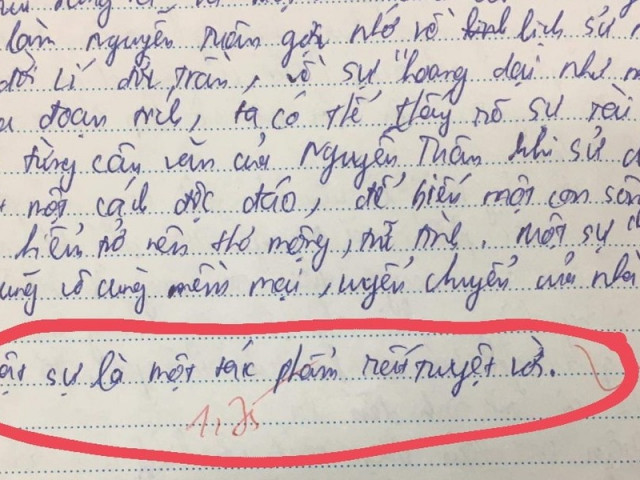 làm Nguyễn Tuân gợi nhớ về lịch sử
đời Lí đời Trần, về sự "hoang dại như
đoạn trích, ta có thể thấy rõ sự tài
từng câu văn của Nguyễn Tuân khi sử
một cách độc đáo, để biến một con sông
hiểm trở nên thơ mộng, trữ tình. Một sự
vô cùng mềm mại, uyển chuyển của nhà
sự là một tác phẩm rất tuyệt vời.
1,75